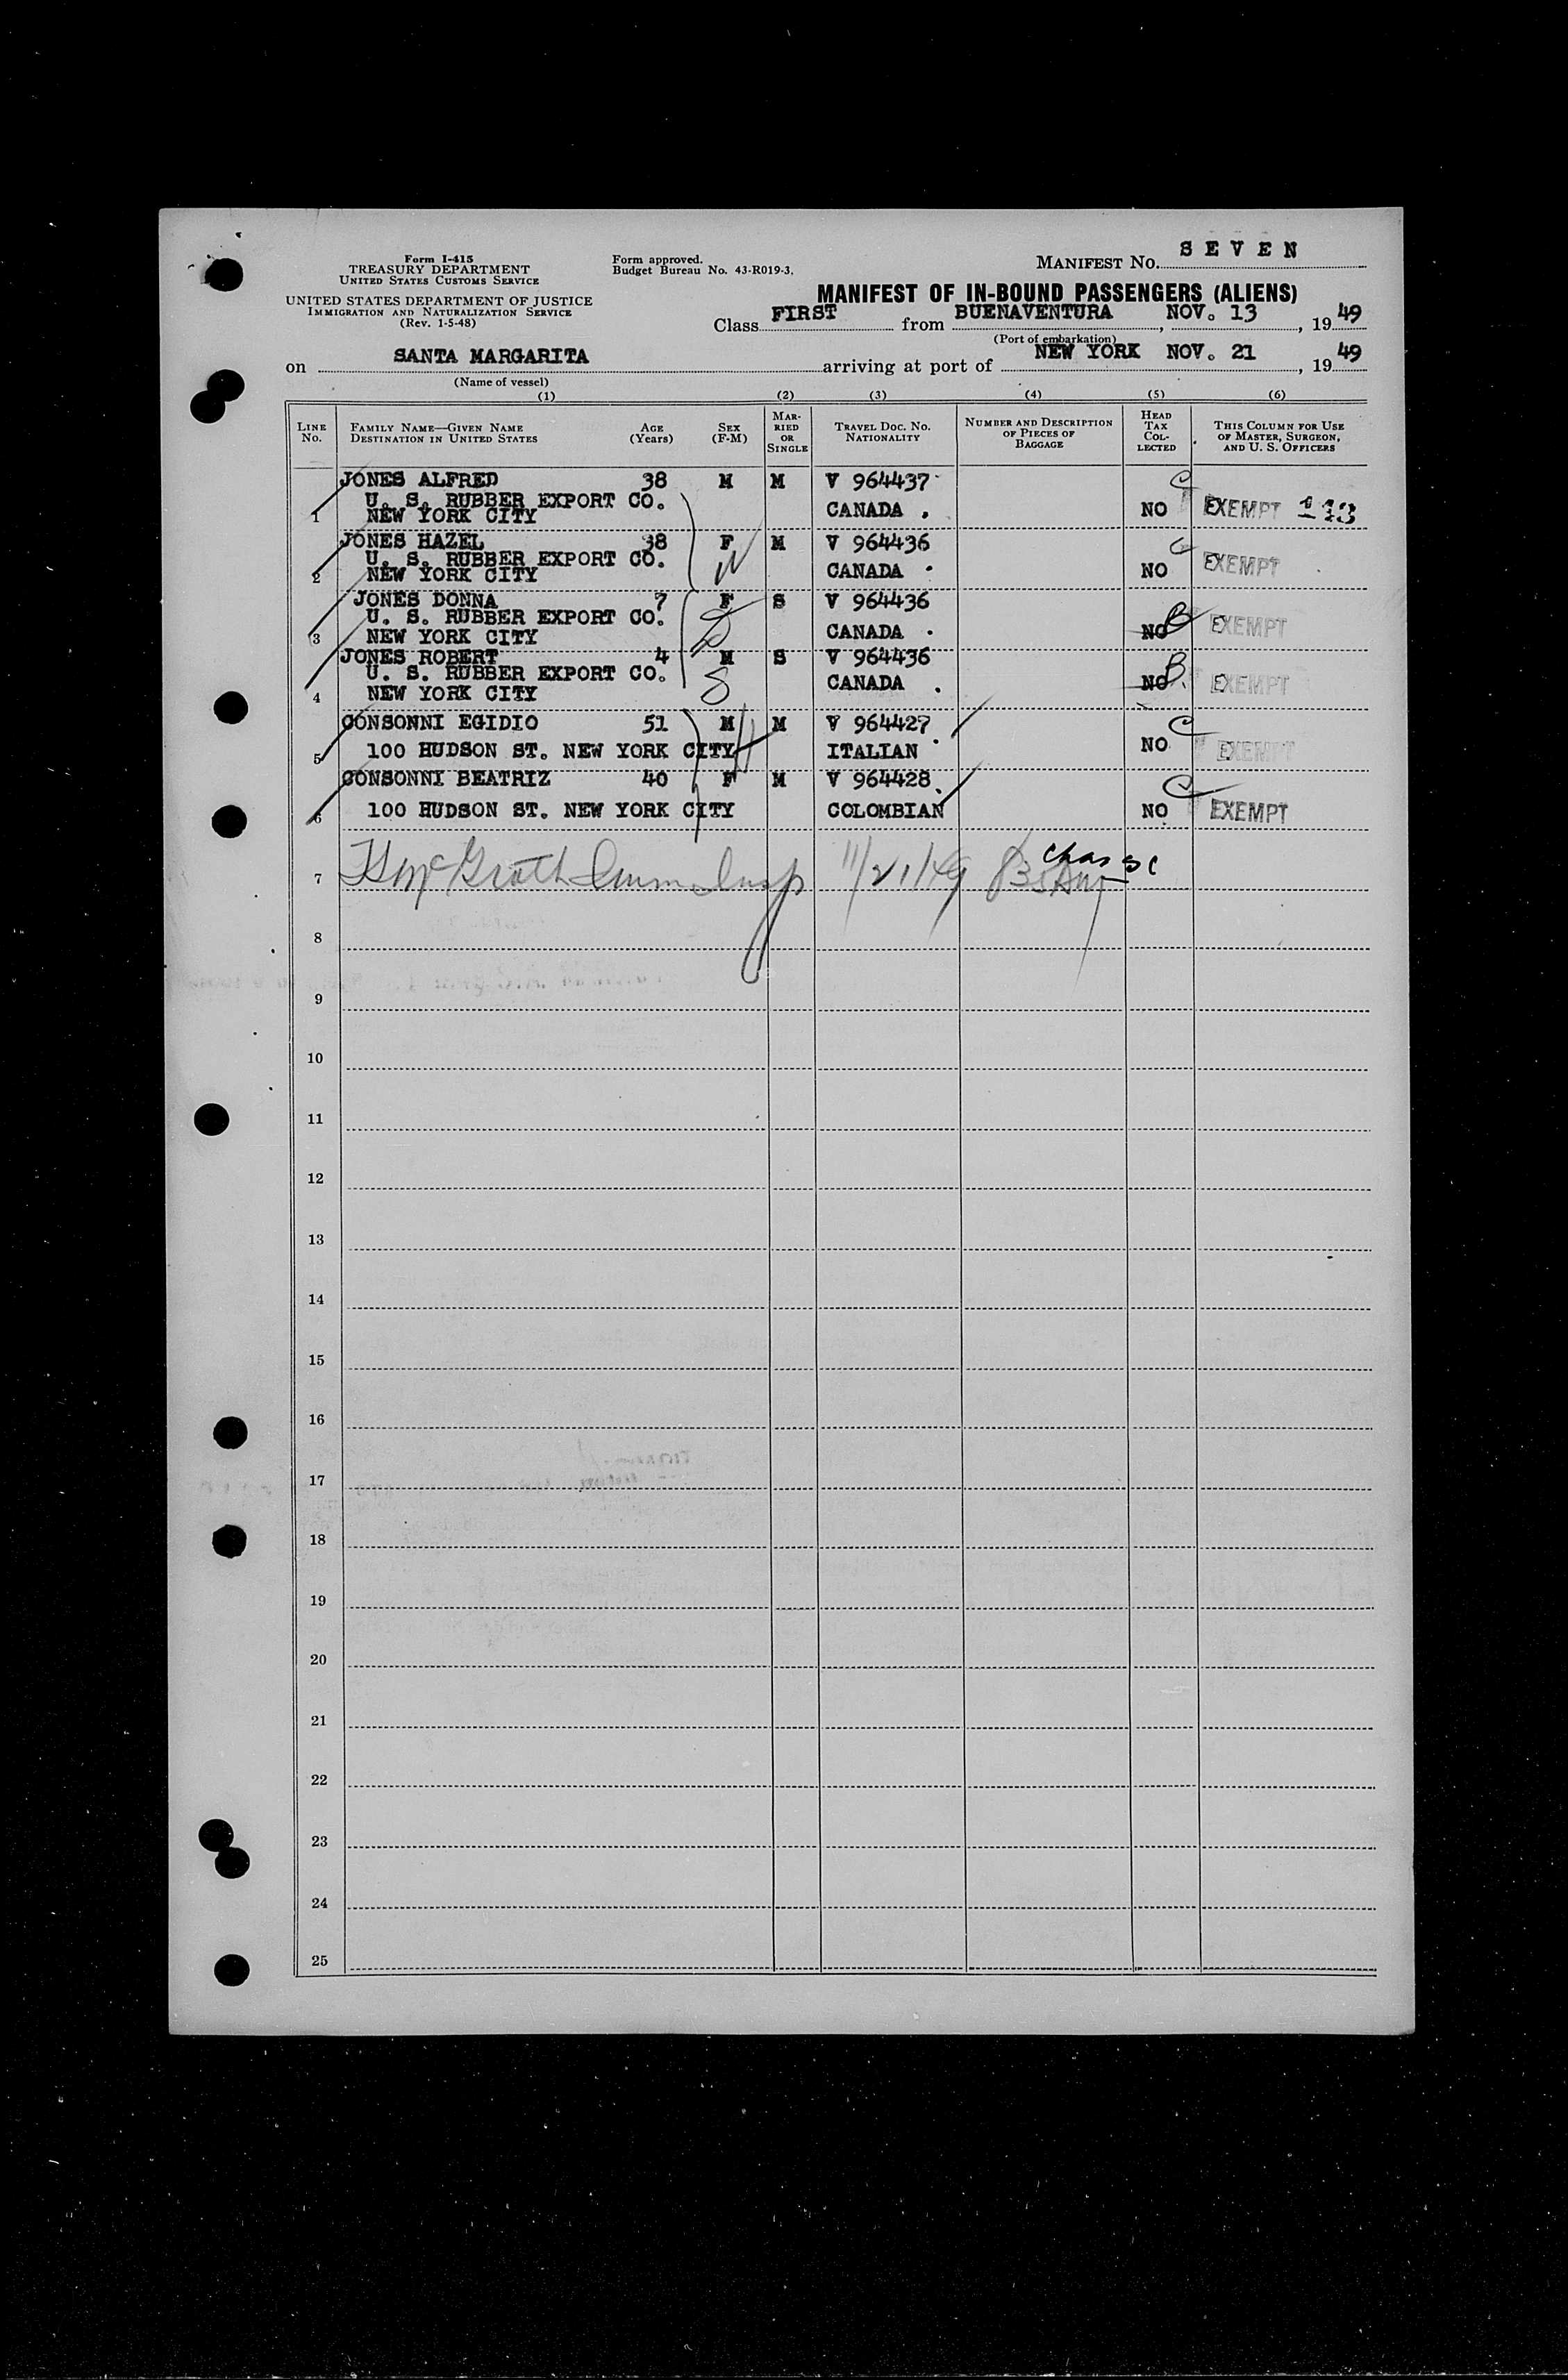 SEVEN
Form I-415
TREASURY DEPARTMENT
UNITED STATES CUSTOMS SERVICE
Form approved.
Budget Bureau No. 43-R019-3.
MANIFEST NO.
UNITED STATES DEPARTMENT OF JUSTICE
IMMIGRATION AND NATURALIZATION SERVICE
(Rev. 1-5-48)
MANIFEST OF IN-BOUND PASSENGERS (ALIENS)
Class FIRST from BUENAVENTURA, NOV. 13, 1949
(Port of embarkation)
on SANTA MARGARITA arriving at port of NEW YORK NOV. 21, 1949
(Name of vessel)
(1) (2) (3) (4) (5) (6)
LINE NO.
FAMILY NAME—GIVEN NAME
DESTINATION IN UNITED STATES
AGE (Years)
SEX (F-M)
MARRIED OR SINGLE
TRAVEL DOC. NO.
NATIONALITY
NUMBER AND DESCRIPTION OF PIECES OF BAGGAGE
HEAD TAX COLLECTED
THIS COLUMN FOR USE OF MASTER, SURGEON, AND U. S. OFFICERS
JONES ALFRED 38 M M V 964437 C
U. S. RUBBER EXPORT CO.
1 NEW YORK CITY CANADA . NO EXEMPT
JONES HAZEL 38 F M V 964436 C
U. S. RUBBER EXPORT CO. W
2 NEW YORK CITY CANADA NO EXEMPT
JONES DONNA 7 F S V 964436
U. S. RUBBER EXPORT CO. D B
3 NEW YORK CITY CANADA NO EXEMPT
JONES ROBERT 4 M S V 964436 B
U. S. RUBBER EXPORT CO. S
4 NEW YORK CITY CANADA . NO EXEMPT
CONSONNI EGIDIO 51 M M V 964427 C
5 100 HUDSON ST. NEW YORK CITY H ITALIAN NO EXEMPT
CONSONNI BEATRIZ 40 F M V 964428 C
6 100 HUDSON ST. NEW YORK CITY COLOMBIAN NO EXEMPT
7 McGrath Imm Insp 11/21/49
8
9
10
11
12
13
14
15
16
17
18
19
20
21
22
23
24
25